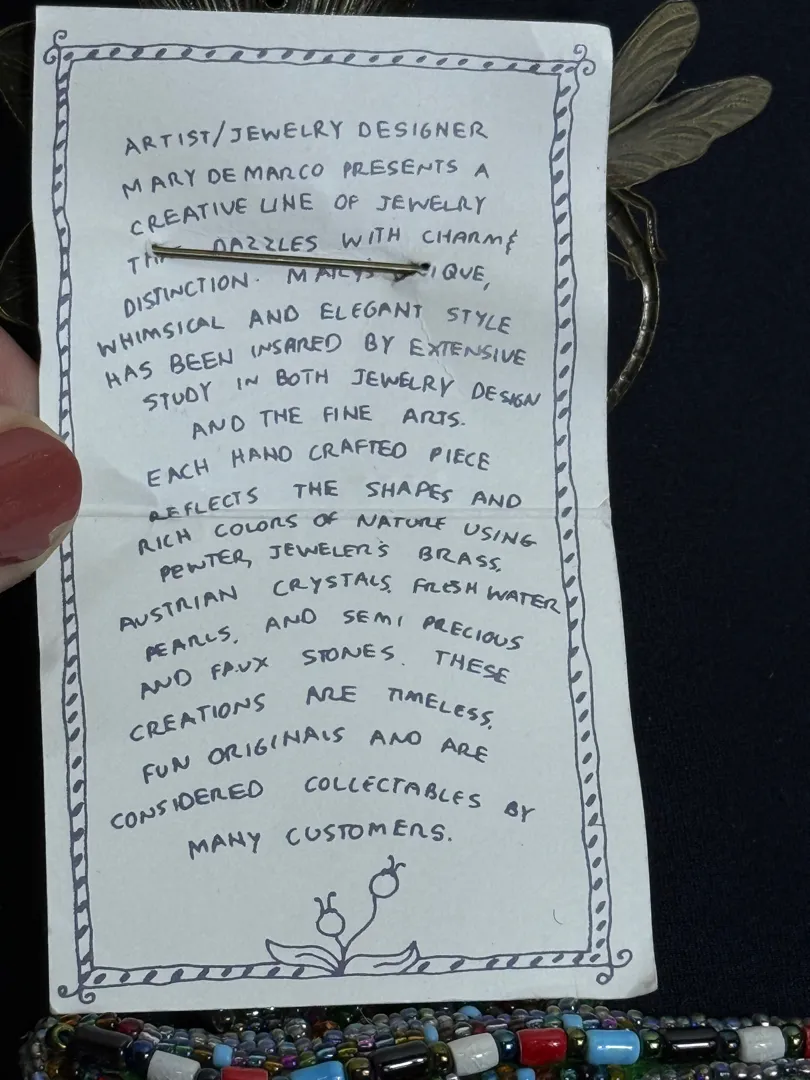 ARTIST/JEWELRY DESIGNER
MARY DE MARCO PRESENTS A
CREATIVE LINE OF JEWELRY
DAZZLES WITH CHARM &
DISTINCTION. MARY'S
WHIMSICAL AND ELEGANT STYLE
HAS BEEN INSARED BY EXTENSIVE
STUDY IN BOTH JEWELRY DESIGN
AND THE FINE ARTS.
EACH HAND CRAFTED PIECE
REFLECTS THE SHAPES AND
RICH COLORS OF NATURE USING
PEWTER, JEWELER'S BRASS,
AUSTRIAN CRYSTALS, FRESH WATER
PEARLS, AND SEMI PRECIOUS
AND FAUX STONES. THESE
CREATIONS ARE TIMELESS,
FUN ORIGINALS AND ARE
CONSIDERED COLLECTABLES BY
MANY CUSTOMERS.